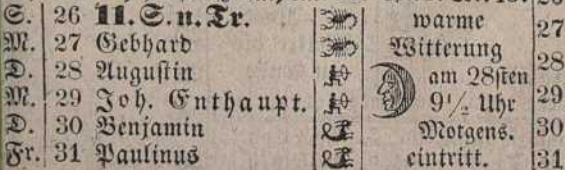 S. 26 11. S. n. Tr. warme 27
M. 27 Gebhard Witterung
D. 28 Augustin am 28sten 28
M. 29 Joh. Enthaupt. 9½ Uhr 29
D. 30 Benjamin Motgens. 30
Fr. 31 Paulinus eintritt. 31